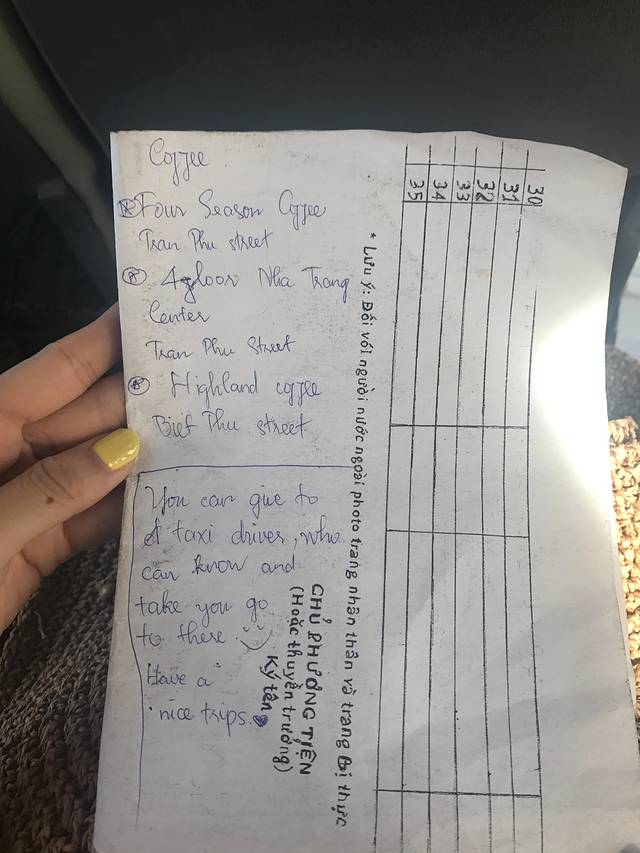 Coffee:
Four Season Coffee
Tran Phu street
4 floor Nha Trang
Center
Tran Phu Street
Highland coffee
Biet Thu street
You can give to
taxi drives, who
can know and
take you go
to there
Have a
nice trips.
30
31
32
33
34
35
* Lưu ý: Đối với người nước ngoài photo trang nhân thân và trang Bị thực
CHỦ PHƯƠNG TIỆN
(Hoặc thuyền trưởng)
Ký tên